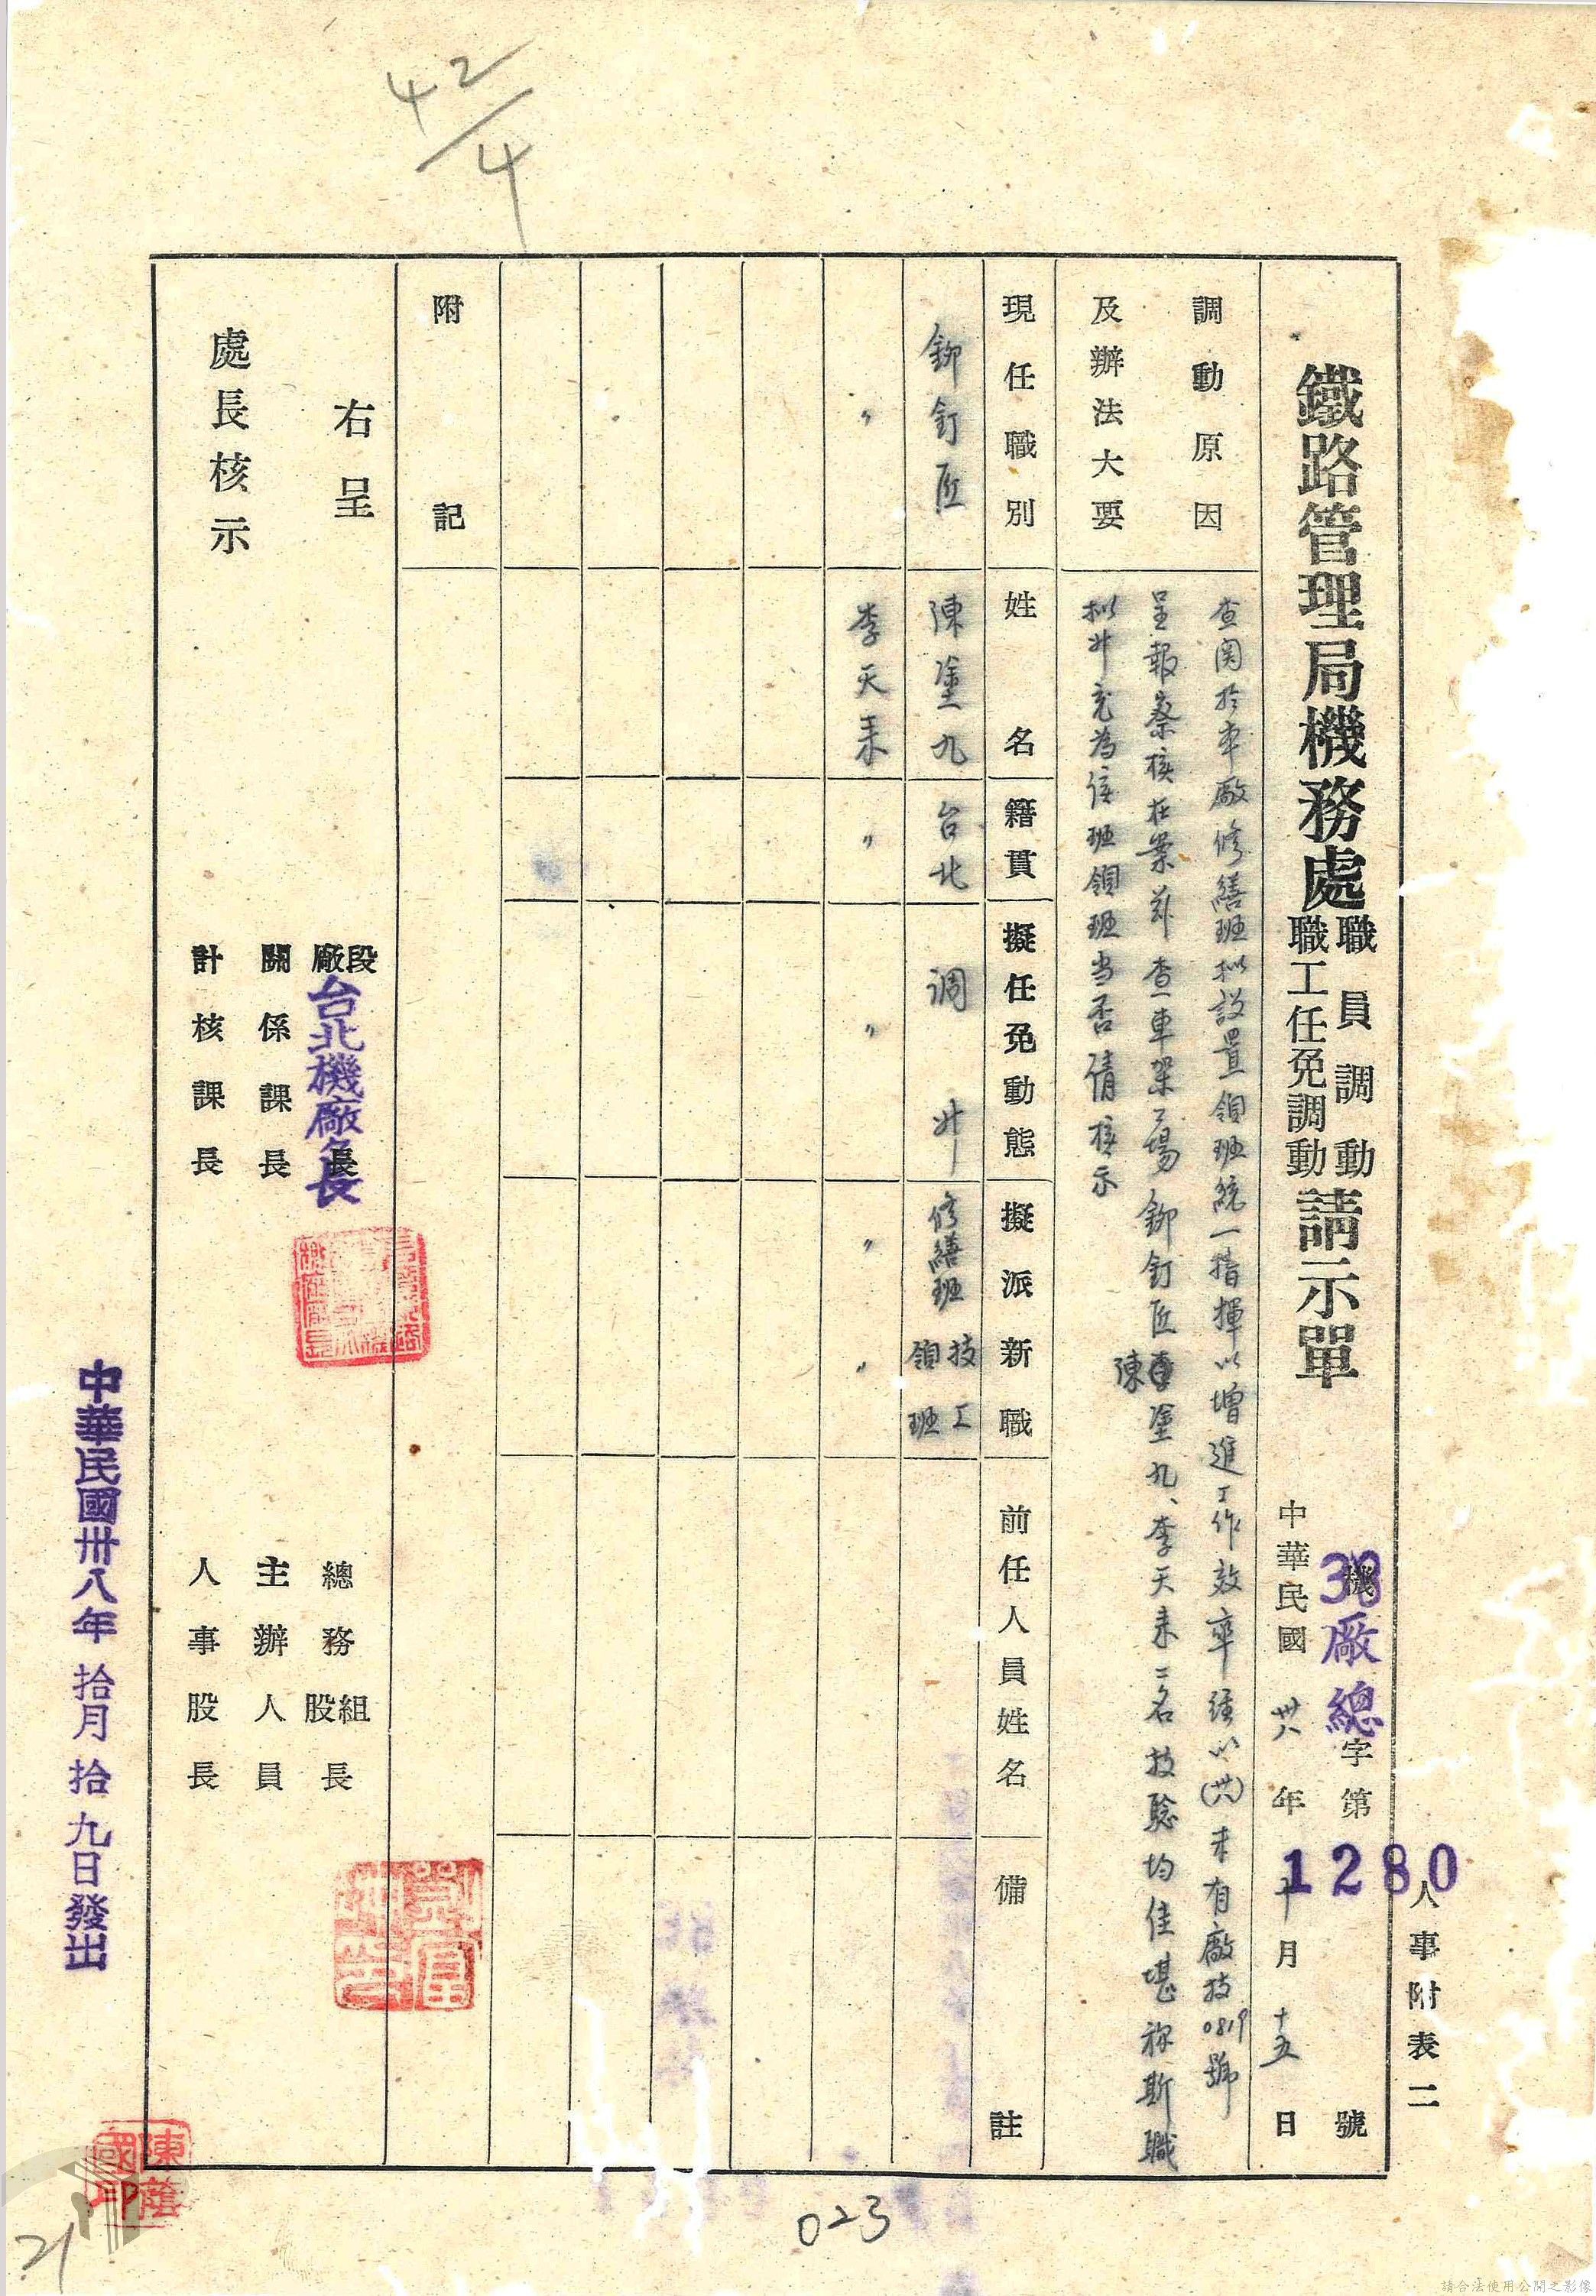 42/4
人事附表二
鐵路管理局機務處職員調動職工任免調動請示單
機38廠總字第1280號
中華民國卅八年十月十五日
調動原因及辦法大要
查関於本廠修繕班拟設置領班統一指揮以增進工作效率經以(卅八)未有廠技0819號
呈報察核在案茲查一車架工場鉚釘匠陳塗九、李天来二名技能均佳堪称斯職
拟升充為該班領班当否倩核示
現任職別 姓名 籍貫 擬任免動態 擬派新職 前任人員姓名 備註
鉚釘匠 陳塗九 台北 調升 修繕班技工領班
〃 李天来 〃 〃 〃 〃
附記
右呈
處長核示
段廠長 台北機廠長
關係課長
計核課長
總務組股長
主辦人員
人事股長
中華民國卅八年拾月拾九日發出
陳蔭國印
023
21
請合法使用公開之影像